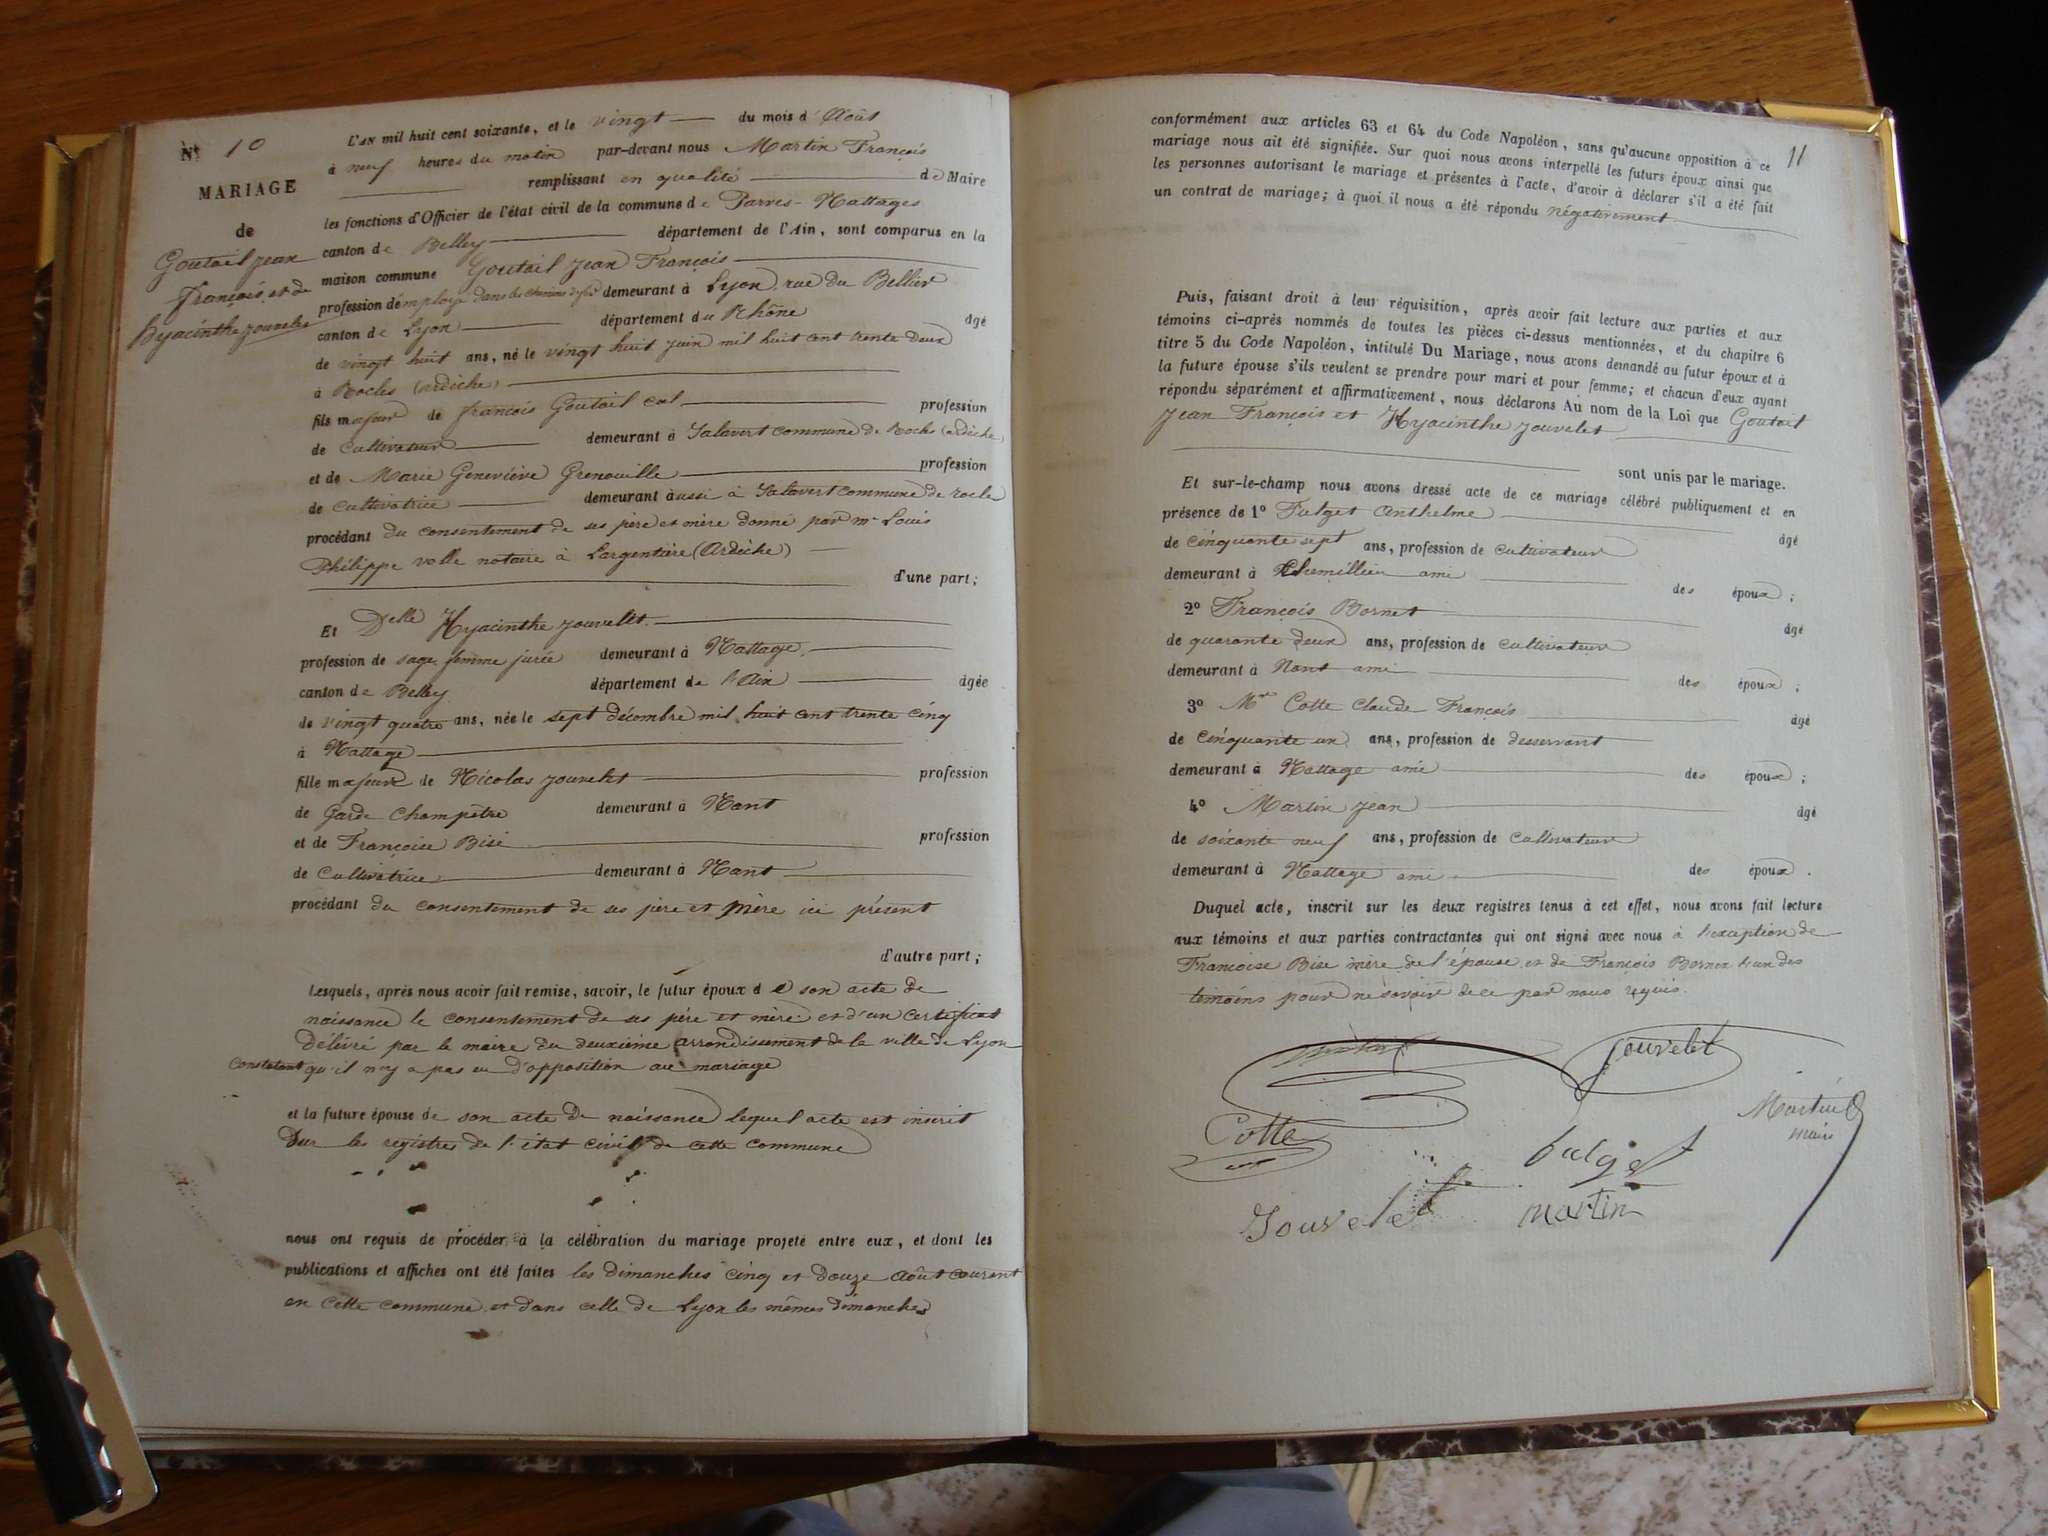 N° 10
MARIAGE
de
Goutail Jean
François et de
hyacinthe jouvelet
L'AN mil huit cent soixante, et le vingt du mois d'Août
à neuf heures du matin par-devant nous Martin François
remplissant en qualité de Maire
les fonctions d'Officier de l'état civil de la commune de Parves-Nattages
canton de Belley département de l'Ain, sont comparus en la
maison commune Goutail Jean François
profession d'employé dans les chemins de fer demeurant à Lyon rue du Bellier
canton de Lyon département du Rhône âgé
de vingt huit ans, né le vingt huit juin mil huit cent trente deux
à Rocles (ardèche)
fils majeur de françois Goutail cal profession
de Cultivateur demeurant à Salavert commune de Rocles (ardèche)
et de Marie Geneviève Grenouille profession
de Cultivatrice demeurant aussi à Salavert commune de rocle
procédant du consentement de ses père et mère donné par mr Louis
Philippe volle notaire à Largentière (Ardèche)
d'une part;
Et Delle Hyacinthe jouvelet
profession de sage femme jurée demeurant à Nattage
canton de Belley département de l'Ain âgée
de vingt quatre ans, née le sept décembre mil huit cent trente cinq
à Nattage
fille majeure de Nicolas jouvelet profession
de Garde Champêtre demeurant à Nant
et de Françoise Bise profession
de Cultivatrice demeurant à Nant
procédant du consentement de ses père et mère ici présent
d'autre part;
Lesquels, après nous avoir fait remise, savoir, le futur époux de son acte de
naissance le consentement de ses père et mère et d'un certificat
délivré par le maire du deuxième arrondissement de la ville de Lyon
constatant qu'il n'y a pas eu d'opposition au mariage
et la future épouse de son acte de naissance lequel acte est inscrit
Sur les registres de l'état civil de cette commune
nous ont requis de procéder à la célébration du mariage projeté entre eux, et dont les
publications et affiches ont été faites les dimanches cinq et douze août courant
en cette commune et dans celle de Lyon les mêmes dimanches
11
conformément aux articles 63 et 64 du Code Napoléon, sans qu'aucune opposition à ce
mariage nous ait été signifiée. Sur quoi nous avons interpellé les futurs époux ainsi que
les personnes autorisant le mariage et présentes à l'acte, d'avoir à déclarer s'il a été fait
un contrat de mariage; à quoi il nous a été répondu négativement
Puis, faisant droit à leur réquisition, après avoir fait lecture aux parties et aux
témoins ci-après nommés de toutes les pièces ci-dessus mentionnées, et du chapitre 6
titre 5 du Code Napoléon, intitulé Du Mariage, nous avons demandé au futur époux et à
la future épouse s'ils veulent se prendre pour mari et pour femme; et chacun d'eux ayant
répondu séparément et affirmativement, nous déclarons Au nom de la Loi que Goutail
Jean François et Hyacinthe jouvelet
sont unis par le mariage.
Et sur-le-champ nous avons dressé acte de ce mariage célébré publiquement et en
présence de 1° Fulget Anthelme âgé
de cinquante sept ans, profession de cultivateur
demeurant à Chemillieu ami des époux;
2° François Bornet âgé
de quarante deux ans, profession de cultivateur
demeurant à Nant ami des époux;
3° Mr Cotte Claude François âgé
de cinquante un ans, profession de desservant
demeurant à Nattage ami des époux;
4° Martin Jean âgé
de soixante neuf ans, profession de Cultivateur
demeurant à Nattage ami des époux.
Duquel acte, inscrit sur les deux registres tenus à cet effet, nous avons fait lecture
aux témoins et aux parties contractantes qui ont signé avec nous à l'exception de
Françoise Bise mère de l'épouse et de François Bornet l'un des
témoins pour ne savoir de ce par nous requis.
jouvelet
Martin
maire
Cotte
fulget
Jouvelet
martin